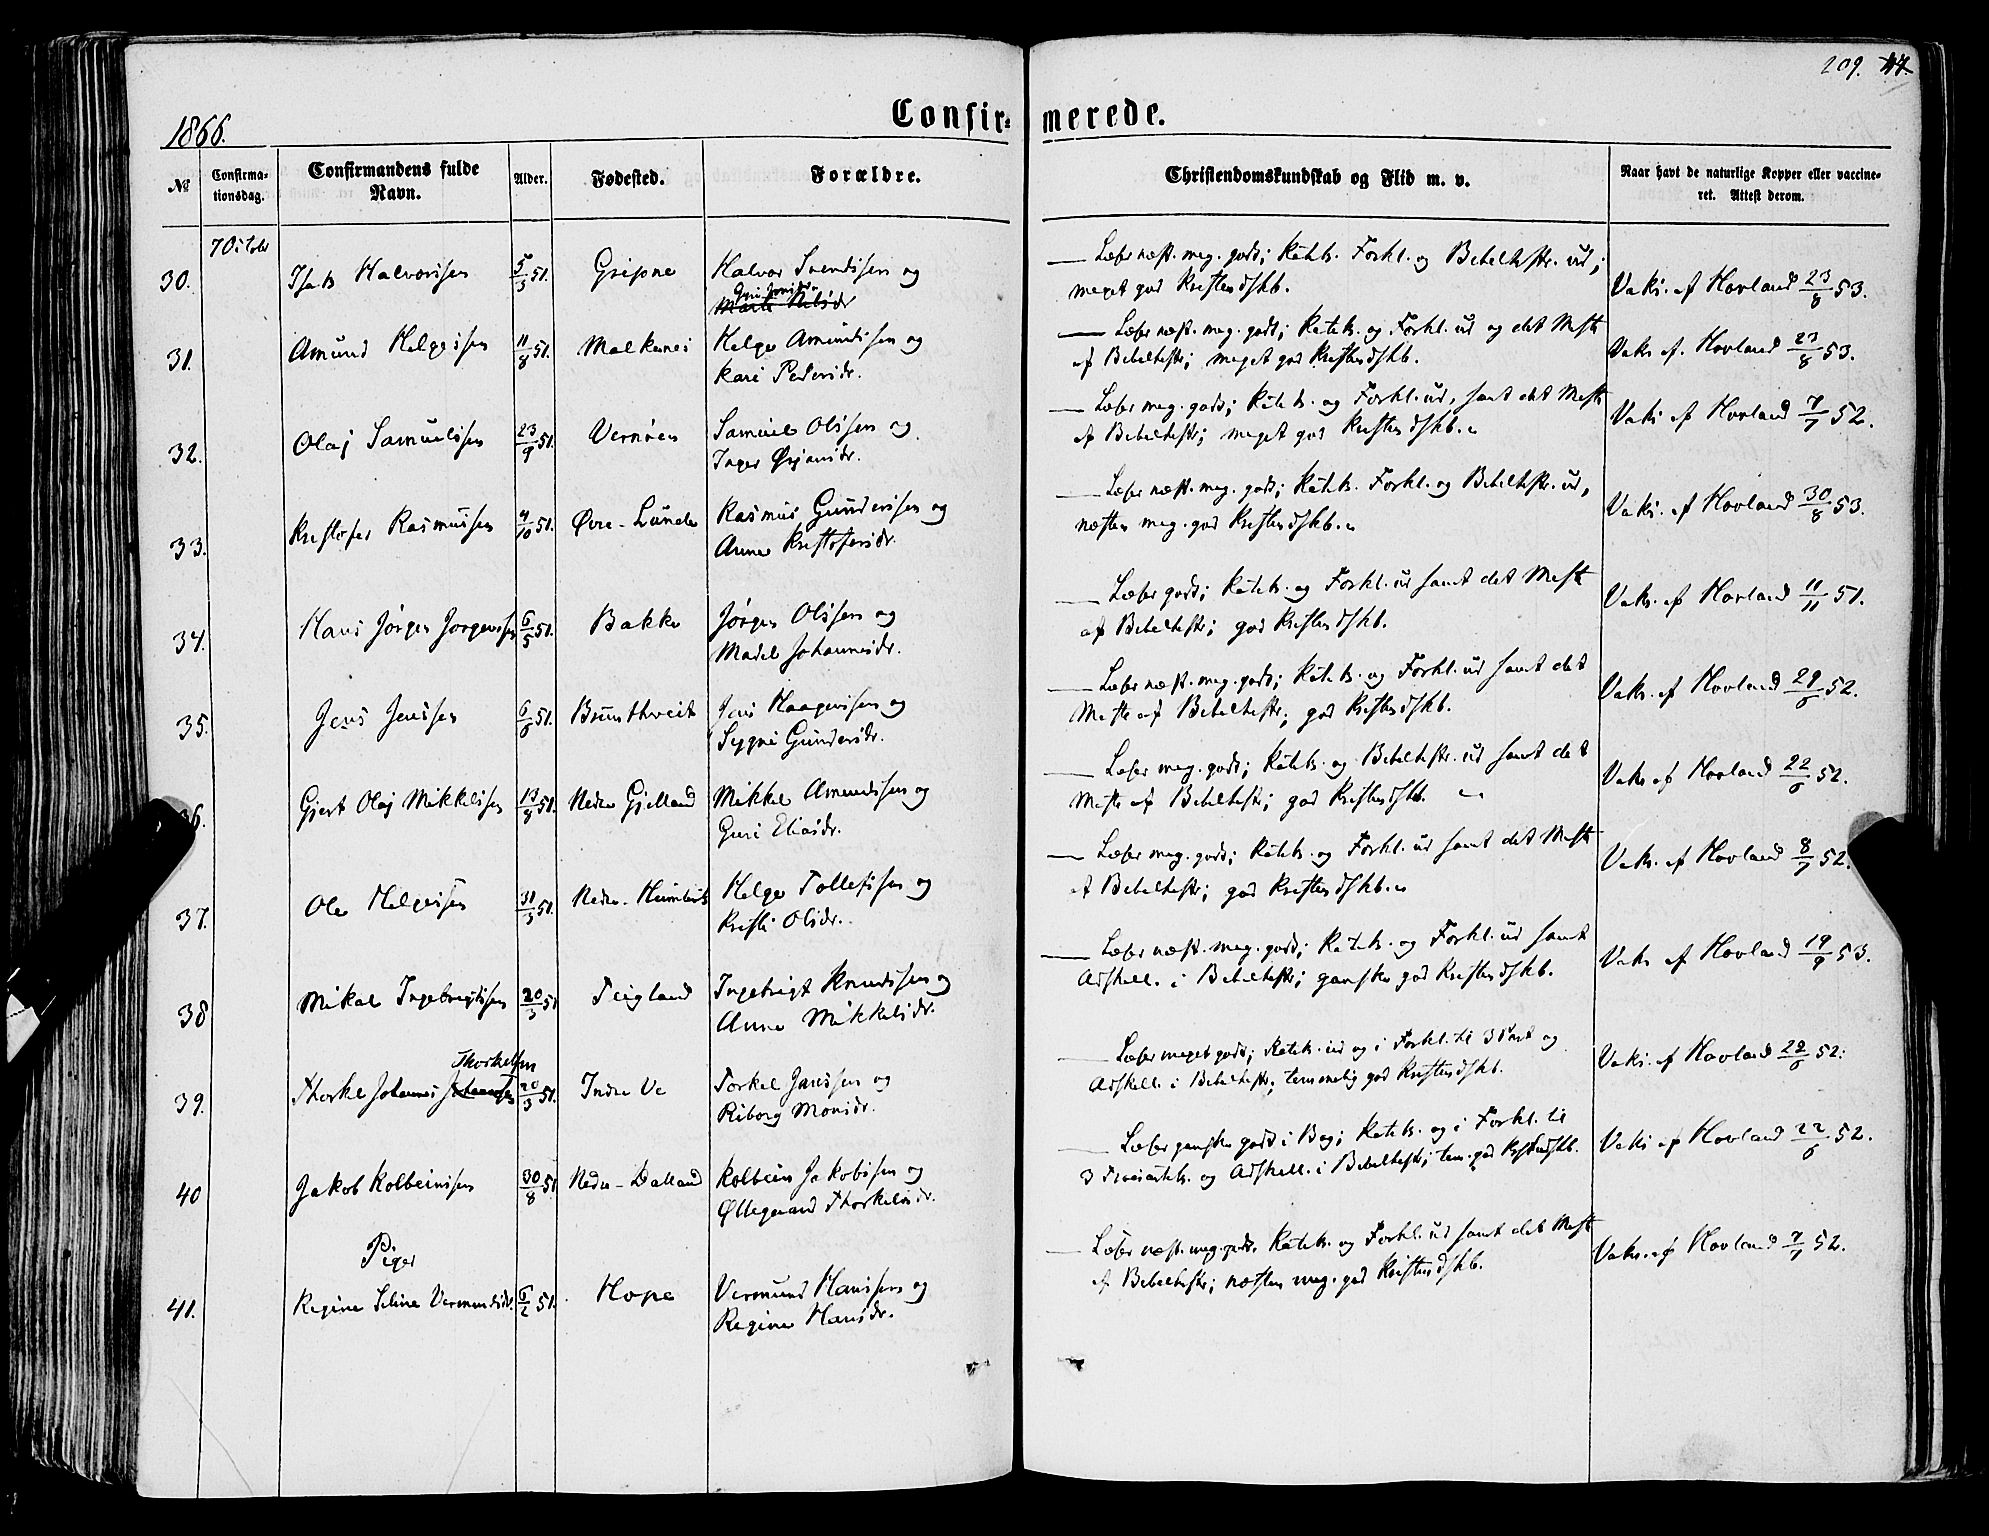 209.
Confirmerede.
1866.
№
Confirmationsdag.
Confirmandens fulde Navn.
Alder.
Fødested.
Forældre.
Christendomskundskab og Flid m. v.
Naar havt de naturlige Kopper eller vaccineret. Attest derom.
7 October
30. Isak Halvorssen 5/3 51. Gripne Halvor Svendssen og
— Læser næst. meg. godt; Katek. Forkl. og Bibelhistr. ud;
meget god Kristendskb.
Vaks. af Hovland 23/8 53.
31. Amund Helgessen 11/8 51. Malkenes Helge Amundssen og
Kari Pedersdr.
— Læser næst. meg. godt; Katek. og Forkl. ud og det Meste
af Bibelhistr; meget god Kristendskb.
Vaks af. Hovland 23/8 53.
32. Olaj Samuelssen 23/9 51. Vernøen Samuel Olssen og
Inger Ørjansdr.
— Læser meg. godt; Katek. og Forkl. ud, samt det Meste
af Bibelhistr; meget god Kristendskb.
Vaks af Hovland 7/7 52.
33. Kristofer Rasmussen 4/10 51. Øvre-Lunde Rasmus Gunderssen og
Anne Kristofersdr.
— Læser næst. meg. godt; Katek. Forkl. og Bibelhistr. ud,
næsten meg. god Kristendskb.
Vaks. af Hovland 30/8 53.
34. Hans Jørgen Jørgenssen 6/5 51. Bakke Jørgen Olssen og
Madel Johannesdr.
— Læser godt; Katek. og Forkl. ud samt det Meste
af Bibelhistr; god Kristendskb.
Vaks. af Hovland 11/11 51.
35. Jens Jenssen 6/6 51. Brunthveit Jens Haagenssen og
Sygni Gundersdr.
— Læser næst. meg. godt; Katek. og Forkl. ud samt det
Meste af Bibelhistr; god Kristendskb.
Vaks. af Hovland 29/6 52.
36. Gjert Olaj Mikkelssen 13/8 51. Nedre Gjelland Mikkel Amundssen og
Guri Eliasdr.
— Læser meg. godt; Katek. og Bibelhistr. ud samt det
Meste af Bibelhistr; god Kristendskb.
Vaks af Hovland 22/6 52.
37. Ole Helgessen 31/3 51. Nedre. Helge Tollefssen og
Kristi Olsdr.
— Læser meg. godt; Katek. og Forkl. ud samt det Meste
af Bibelhistr; god Kristendskb.
Vaks. af Hovland 8/7 52.
38 Mikal Ingebrigtssen 20/3 51 Teigland Ingebrigt Knudssen og
Anna Mikkelsdr.
— Læser næst. meg. godt; Katek. og Forkl. ud samt
Adskell. i Bibelhistr; ganske god Kristendskb.
Vaks af Hovland 19/9 53.
Thorkelsen
39. Thorkel Johannes Johannesen 20/3 51. Indre Ve Torkel Janssen og
Riborg Monsdr.
— Læser meget godt; Katek. ud og i Forkl. til 3 Part og
Adskell. i Bibelhistr; temmelig god Kristendskb.
Vaks. af Hovland 22/6 52.
40 Jakob Kolbeinssen 30/8 51 Nedre-Dalland Kolbein Jakobssen og
Øllegaard Thorkelsdr.
— Læser ganske godt i Bog; Katek. og i Forkl. til
3 Troesartk. og Adskell. i Bibelhistr; tem. god Kristendskb.
Vaks af Hovland 22/6 52.
Piger
41. Regine Seline Vermundsdr. 6/2 51. Hope Vermund Hanssen og
Regine Hansdr.
— Læser næst. meg. godt. Katek. og Forkl. ud samt det Meste
af Bibelhistr; næsten meg. god Kristendskb.
Vaks. af Hovland 7/7 52.